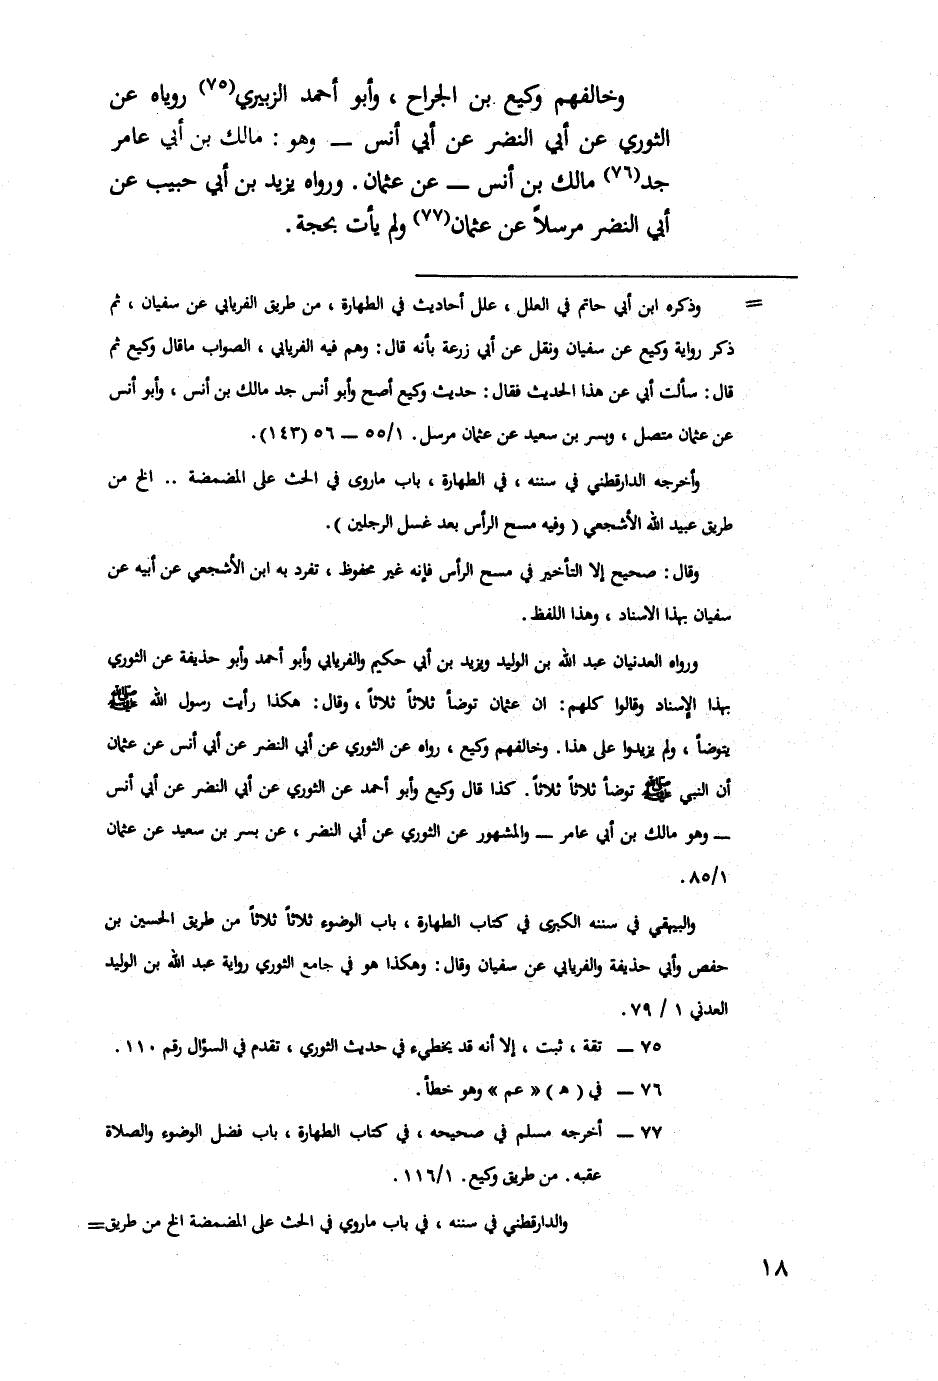 وخالفهم وكيع بن الجراح ، وأبو أحمد الزبيري(٧٥) روياه عن
الثوري عن أبي النضر عن أبي أنس ــ وهو : مالك بن أبي عامر
جد(٧٦) مالك بن أنس ــ عن عثمان . ورواه يزيد بن أبي حبيب عن
أبي النضر مرسلاً عن عثمان(٧٧) ولم يأت بحجة .
= وذكره ابن أبي حاتم في العلل ، علل أحاديث في الطهارة ، من طريق الفريابي عن سفيان ، ثم
ذكر رواية وكيع عن سفيان ونقل عن أبي زرعة بأنه قال : وهم فيه الفريابي ، الصواب ماقال وكيع ثم
قال : سألت أبي عن هذا الحديث فقال : حديث وكيع أصح وأبو أنس جد مالك بن أنس ، وأبو أنس
عن عثمان متصل ، وبسر بن سعيد عن عثمان مرسل . ٥٥/١ ــ ٥٦ (١٤٣) .
وأخرجه الدارقطني في سننه ، في الطهارة ، باب ماروى في الحث على المضمضة .. الخ من
طريق عبيد الله الأشجعي ( وفيه مسح الرأس بعد غسل الرجلين ) .
وقال : صحيح إلا التأخير في مسح الرأس فإنه غير محفوظ ، تفرد به ابن الأشجعي عن أبيه عن
سفيان بهذا الاسناد ، وهذا اللفظ .
ورواه العدنيان عبد الله بن الوليد ويزيد بن أبي حكيم والفريابي وأبو أحمد وأبو حذيفة عن الثوري
بهذا الإسناد وقالوا كلهم : ان عثمان توضأ ثلاثاً ثلاثاً ، وقال : هكذا رأيت رسول الله ﷺ
يتوضأ ، ولم يزيدوا على هذا . وخالفهم وكيع ، رواه عن الثوري عن أبي النضر عن أبي أنس عن عثمان
أن النبي ﷺ توضأ ثلاثاً ثلاثاً . كذا قال وكيع وأبو أحمد عن الثوري عن أبي النضر عن أبي أنس
ــ وهو مالك بن أبي عامر ــ والمشهور عن الثوري عن أبي النضر ، عن بسر بن سعيد عن عثمان
٨٥/١ .
والبيهقي في سننه الكبرى في كتاب الطهارة ، باب الوضوء ثلاثاً ثلاثاً من طريق الحسين بن
حفص وأبي حذيفة والفريابي عن سفيان وقال : وهكذا هو في جامع الثوري رواية عبد الله بن الوليد
العدني ١ / ٧٩ .
٧٥ ــ ثقة ، ثبت ، إلا أنه قد يخطيء في حديث الثوري ، تقدم في السؤال رقم ١١٠ .
٧٦ ــ في ( ه ) « عم » وهو خطأ .
٧٧ ــ أخرجه مسلم في صحيحه ، في كتاب الطهارة ، باب فضل الوضوء والصلاة
عقبه . من طريق وكيع . ١١٦/١ .
والدارقطني في سننه ، في باب ماروي في الحث على المضمضة الخ من طريق=
١٨